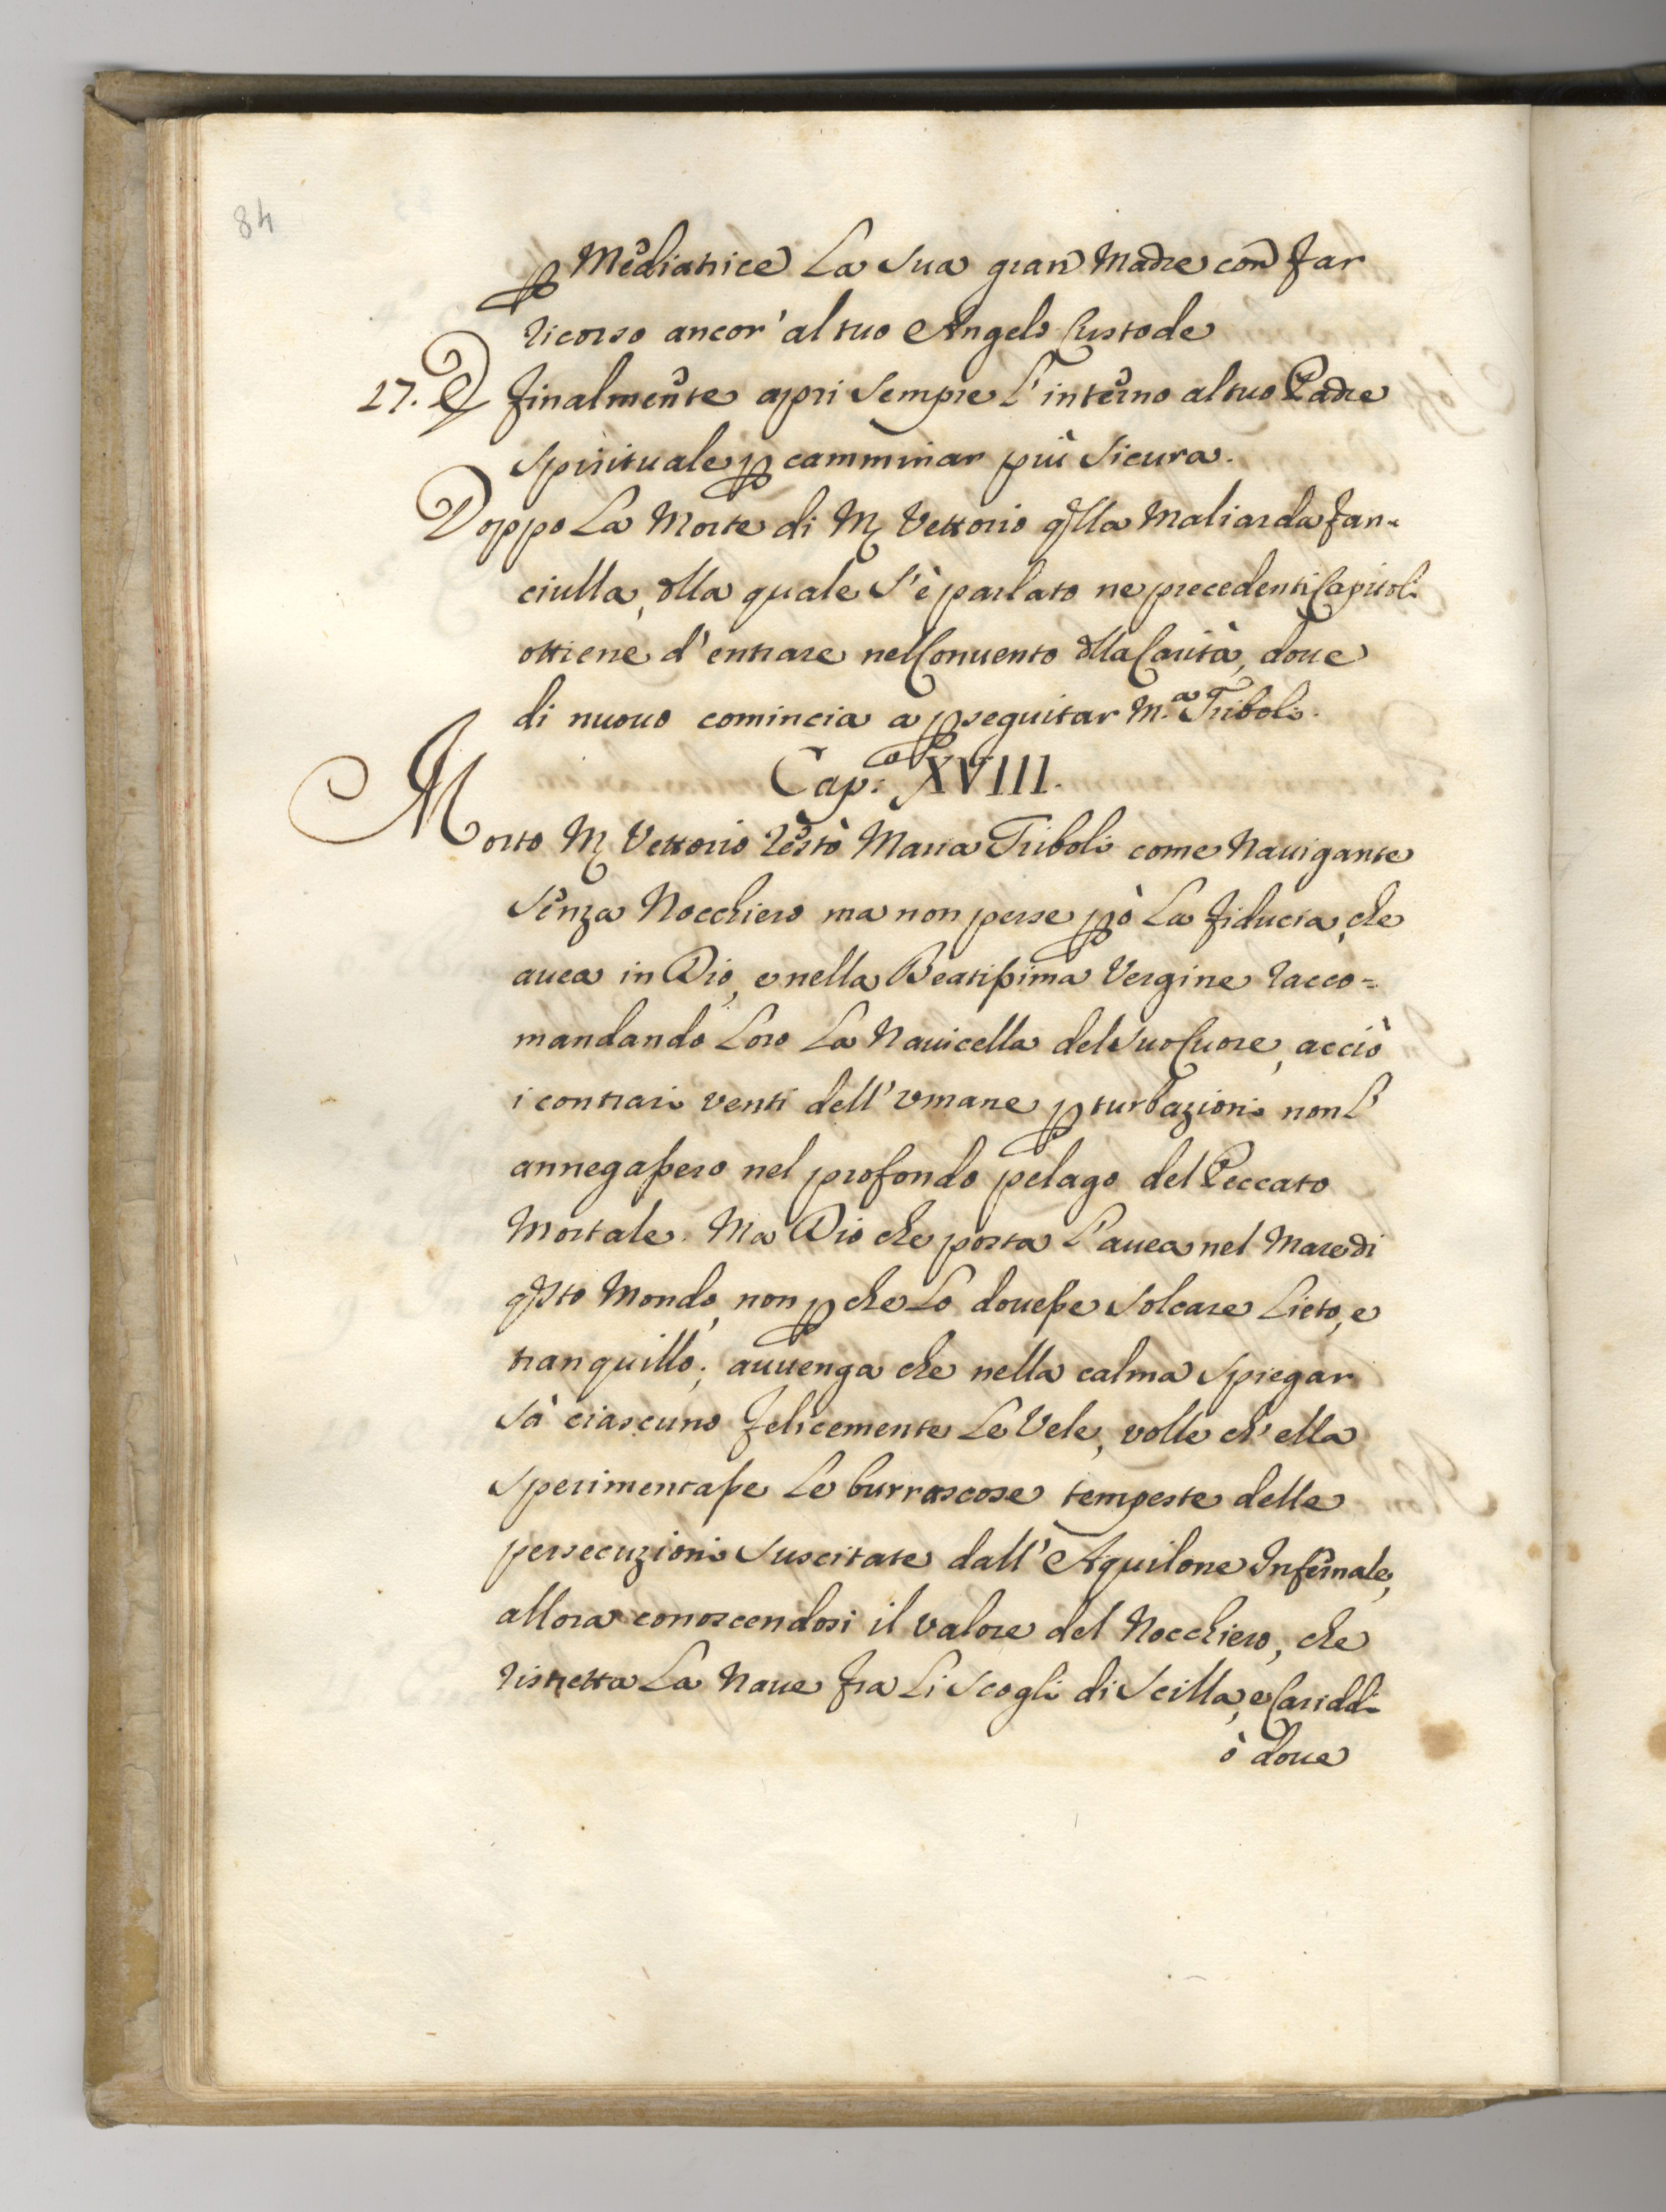 84
ꝑ Mediatrice La Sua gran Madre con far
ricorso ancor' al tuo Angelo Custode
27. E finalmente apri sempre l'interno al tuo Padre
Spirituale ꝑ camminar più sicura.
Doppo La Morte di M. Vettorio qlla Maliarda fan-
ciulla, dlla quale s'è parlato ne precedenti Capitoli
ottiene d'entrare nel Conuento dlla Carità, doue
di nuouo comincia a ꝑseguitar M.ª Triboli.
Cap.º XVIII.
Morto M. Vettorio restò Maria Triboli come Nauigante
senza Nocchiero ma non perse ꝑò La fiducia, che
auea in Dio, e nella Beatissima Vergine racco=
mandando Loro La Nauicella del suo Cuore, acciò
i contrari venti dell'vmane ꝑturbazioni non l'
annegassero nel profondo pelago del Peccato
Mortale. Ma Dio che posta l'auea nel Mare di
qsto Mondo, non ꝑche Lo douesse solcare Lieto, e
tranquillo; auuenga che nella calma spiegar
sà ciascuno felicemente Le Vele, volle ch'ella
sperimentasse Le burrascose tempeste delle
persecuzioni suscitate dall'Aquilone Infernale,
allora conoscendosi il valore del Nocchiero, che
ristretta La Naue fra Li Scogli di Scilla, e Cariddi
ò doue